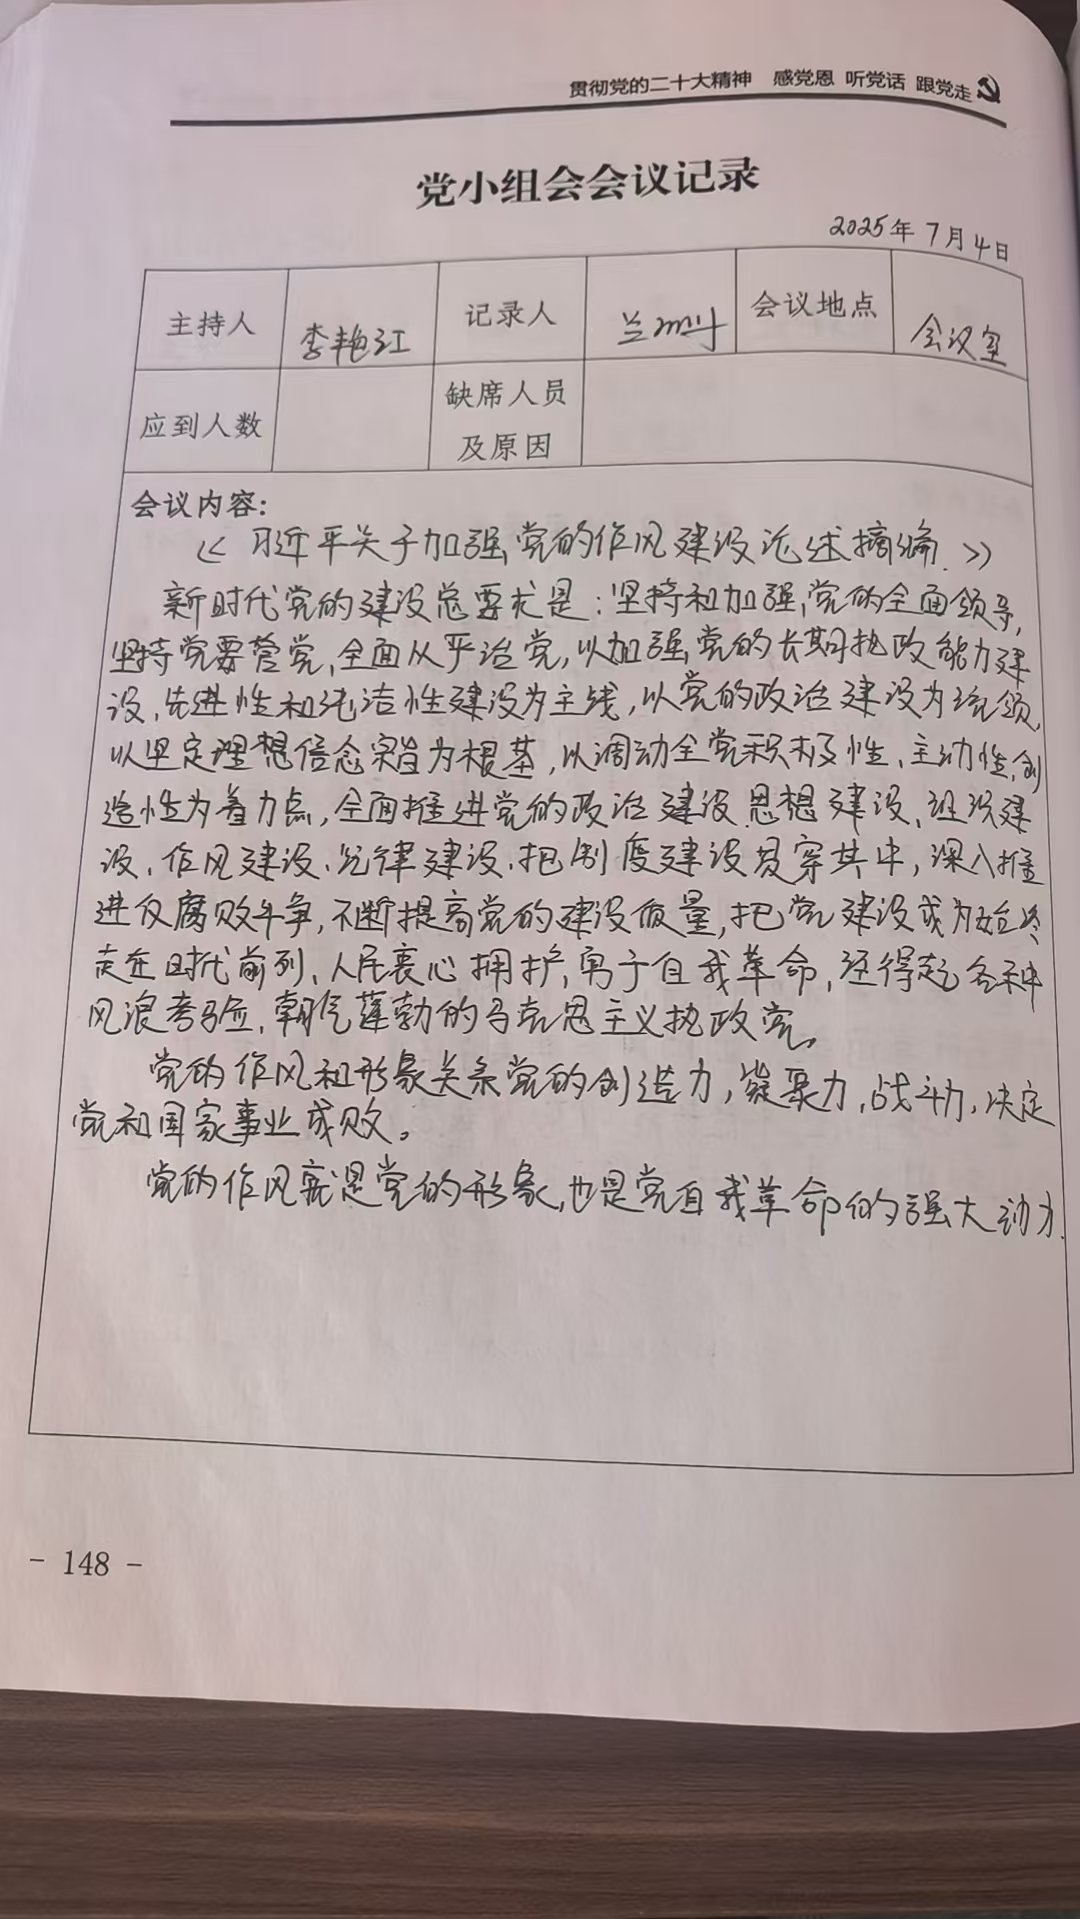 贯彻党的二十大精神 感党恩 听党话 跟党走
党小组会会议记录
2025年7月4日
主持人 李艳江 记录人 兰 会议地点 会议室
应到人数 缺席人员及原因
会议内容:
《习近平关于加强党的作风建设论述摘编》
新时代党的建设总要求是:坚持和加强党的全面领导,
坚持党要管党,全面从严治党,以加强党的长期执政能力建
设、先进性和纯洁性建设为主线,以党的政治建设为统领,
以坚定理想信念宗旨为根基,以调动全党积极性、主动性、创
造性为着力点,全面推进党的政治建设、思想建设、组织建
设、作风建设、纪律建设,把制度建设贯穿其中,深入推
进反腐败斗争,不断提高党的建设质量,把党建设成为始终
走在时代前列、人民衷心拥护、勇于自我革命,经得起各种
风浪考验、朝气蓬勃的马克思主义执政党。
党的作风和形象关系党的创造力,凝聚力,战斗力,决定
党和国家事业成败。
党的作风就是党的形象,也是党自我革命的强大动力.
- 148 -